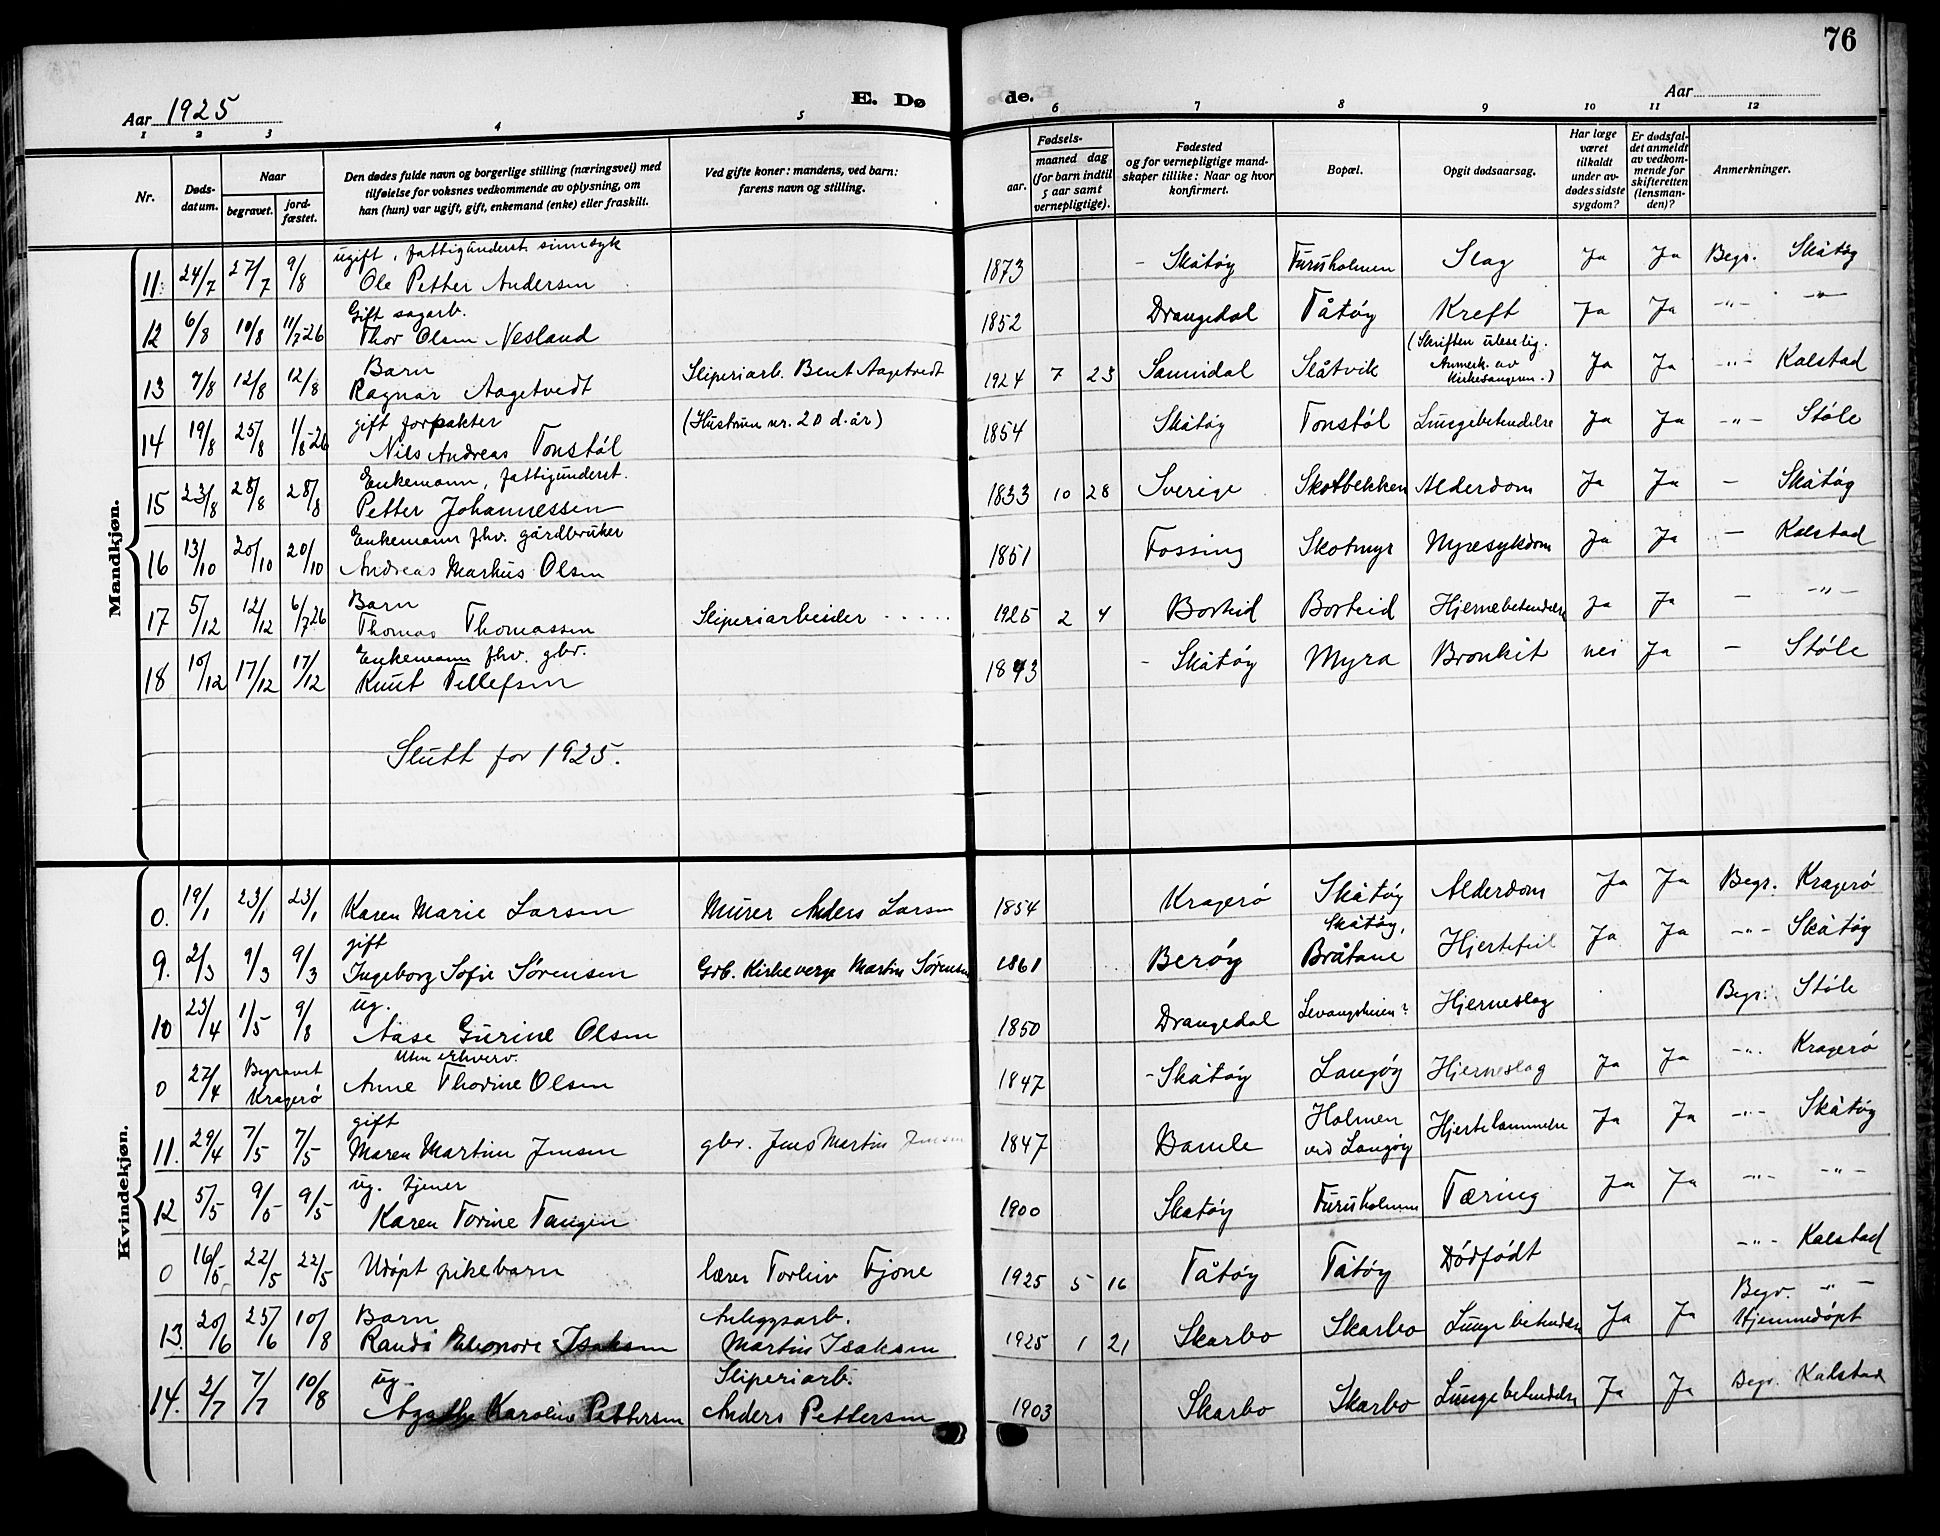 76
Aar 1925 E. Dø de. Aar
1 2 3 4 5 6 7 8 9 10 11 12
Nr. Døds-datum. Naar begravet. jord-fæstet. Den dødes fulde navn og borgerlige stilling (næringsvei) med tilføielse for voksnes vedkommende av oplysning, om han (hun) var ugift, gift, enkemand (enke) eller fraskilt. Ved gifte koner: mandens, ved barn: farens navn og stilling. Fødsels- aar. maaned dag (for barn indtil 5 aar samt vernepligtige). Fødested og for vernepligtige mand-skaper tillike: Naar og hvor konfirmert. Bopæl. Opgit dødsaarsag. Har læge været tilkaldt under av-dødes sidste sygdom? Er dødsfal-det anmeldt av vedkom-mende for skifteretten (lensman-den)? Anmerkninger.
Mandkjøn.
ugift, fattigunderst. sinnsyk
11. 24/7 27/7 9/8 Ole Petter Andersen 1873 - Skåtøy Furuholmen Slag Ja Ja Begr. Skåtøy
Gift sagarb.
12 6/8 10/8 11/7-26 Thor Olsen Vesland 1852 Drangedal Tåtøy Kreft Ja Ja -"- -"-
(Skriften uleselig. Anmerk. av Kirkesangeren.)
Barn
13 7/8 12/8 12/8 Ragnar Aagetvedt Sliperiarb. Bent Aagetvedt 1924 7 23 Sannidal Slåtvik Ja Ja -"- Kalstad
gift forpakter
14 19/8 25/8 1/8-26 Nils Andreas Tonstøl (Hustruen nr. 20 d. år) 1854 Skåtøy Tonstøl Lungebetendelse Ja Ja -"- Støle
Enkemann, fattigunderst.
15 23/8 28/8 28/8 Petter Johannessen 1833 10 28 Sverige Skotbekken Alderdom Ja Ja - Skåtøy
Enkemann fhv. gårdbruker
16 13/10 20/10 20/10 Andreas Markus Olsen 1851 Fossing Skotmyr Nyresykdom Ja Ja - Kalstad
Barn
17 5/12 12/12 6/7 26 Thomas Thomassen Sliperiarbeider ..... 1925 2 4 Borteid Borteid Hjernebetendelse Ja Ja - -"-
Enkemann fhv. gbr.
18 10/12 17/12 17/12 Knut Tellefsen 1843 - Skåtøy Myra Bronkit nei Ja - Støle
Slutt for 1925.
Kvindekjøn.
0. 19/1 23/1 23/1 Karen Marie Larsen Murer Anders Larsen 1854 Kragerø Skåtøy Alderdom Ja Ja Begr. Kragerø
gift
9. 2/3 9/3 9/3 Ingeborg Sofie Sørensen Grb. Kirkeverge Martin Sørensen 1861 Berøy Skåtøy, Bråtane Hjertefeil Ja Ja -"- Skåtøy
ug.
10 23/4 1/5 9/8 Aase Gurine Olsen 1850 Drangedal Levangsheien? Hjerneslag Begr. Støle
Uten erhverv.
0 27/4 Begravet Kragerø Anne Thorine Olsen 1847 - Skåtøy Langøy Hjerneslag Ja Ja -"- Kragerø
gift
11. 29/4 7/5 7/5 Maren Martine Jensen gbr. Jens Martin Jensen 1847 Bamle Holmen ved Langøy Hjertelammelse Ja Ja -"- Skåtøy
ug. tjener
12 5/5 9/5 9/5 Karen Torine Tangen 1900 Skåtøy Furuholmen Tæring Ja Ja -"- -"-
0 16/5 22/5 22/5 Udøpt pikebarn lærer Torleiv Fjone 1925 5 16 Tåtøy Tåtøy Dødfødt -"- Kalstad
Barn Anleggsarb. Begr. -"-
13. 20/6 25/6 10/8 Randi Eleonore Isaksen Martin Isaksen 1925 1 21 Skarbo Skarbo Lungebetendelse Ja Ja Hjemmedøpt
ug. Sliperiarb.
14. 2/7 7/7 10/8 Agathe Karoline Pettersen Anders Pettersen 1903 Skarbo Skarbo Lungebetendelse Ja Ja Begr. Kalstad